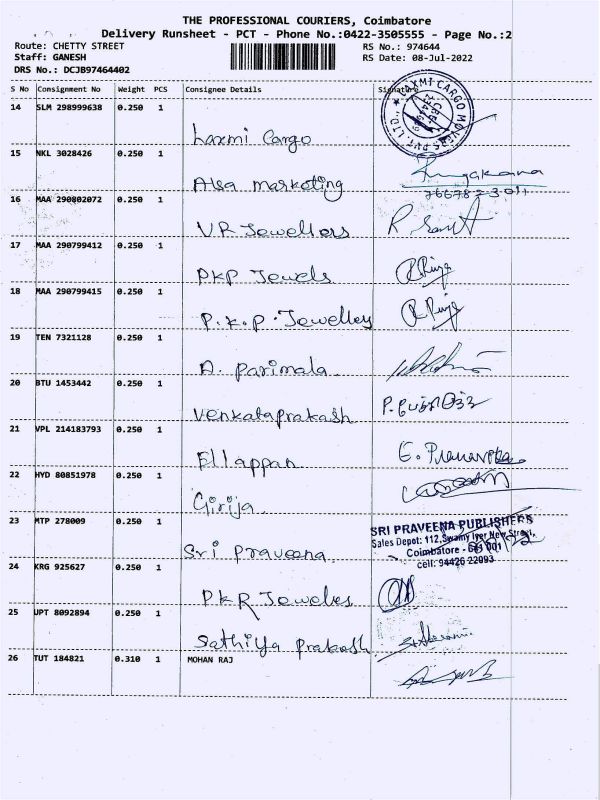 THE PROFESSIONAL COURIERS, Coimbatore
Delivery Runsheet - PCT - Phone No.:0422-3505555 - Page No.:2
Route: CHETTY STREET RS No.: 974644
Staff: GANESH RS Date: 08-Jul-2022
DRS No.: DCJB97464402
S No Consignment No Weight PCS Consignee Details Signature
14 SLM 298999638 0.250 1
Laxmi Cargo
LAXMI CARGO MOVERS PVT. LTD.
15 NKL 3028426 0.250 1
Alsa marketing
16 MAA 290802072 0.250 1
VR Jewellers
17 MAA 290799412 0.250 1
PKP Jewels
18 MAA 290799415 0.250 1
P.K.P. Jewellery
19 TEN 7321128 0.250 1
A. Parimala
20 BTU 1453442 0.250 1
Venkataprakash
21 VPL 214183793 0.250 1
Ellappan
22 HYD 80851978 0.250 1
Girija
23 MTP 278009 0.250 1
SRI PRAVEENA PUBLISHERS
Sales Depot: 112, Swamy Iyer New Street,
Coimbatore - 641 001
cell: 94426 22093
Sri Praveena
24 KRG 925627 0.250 1
PKR Jewelles
25 JPT 8092894 0.250 1
Sathiya Prakash
26 TUT 184821 0.310 1 MOHAN RAJ